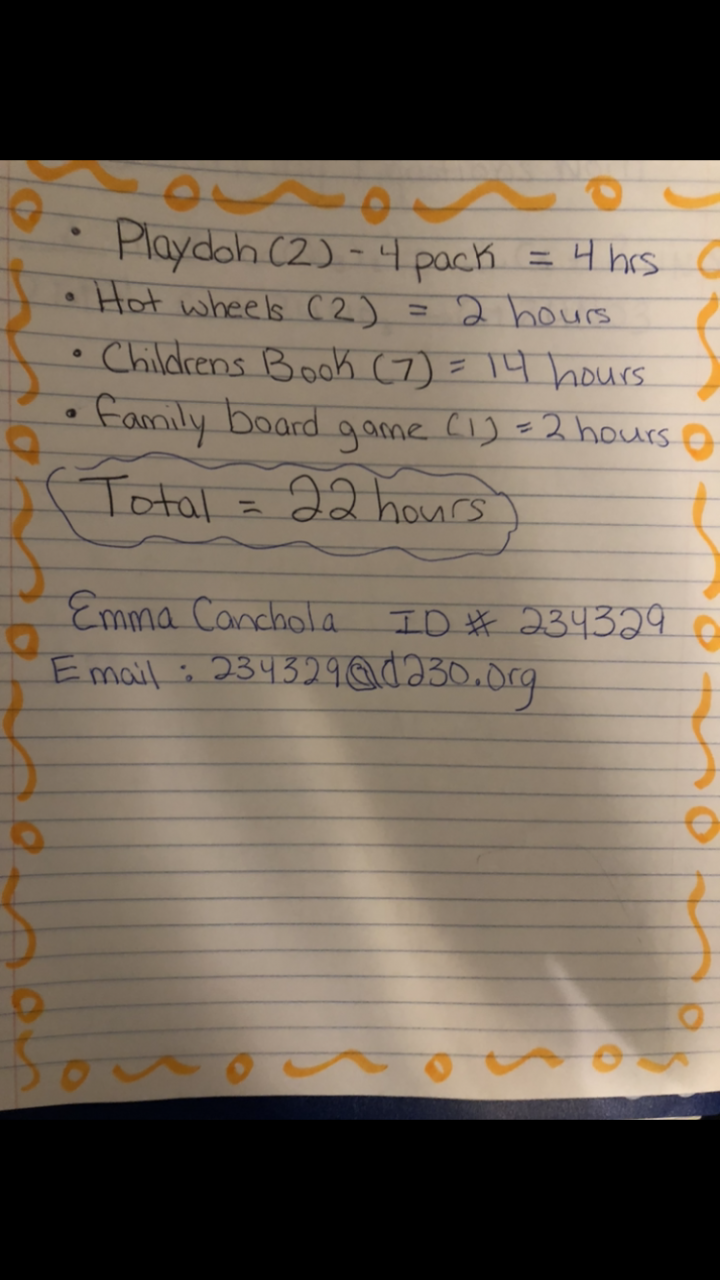 • Playdoh (2) - 4 pack = 4 hrs
• Hot wheels (2) = 2 hours
• Childrens Book (7) = 14 hours
• family board game (1) = 2 hours
Total = 22 hours
Emma Canchola ID # 234329
Email : 234329@d230.org